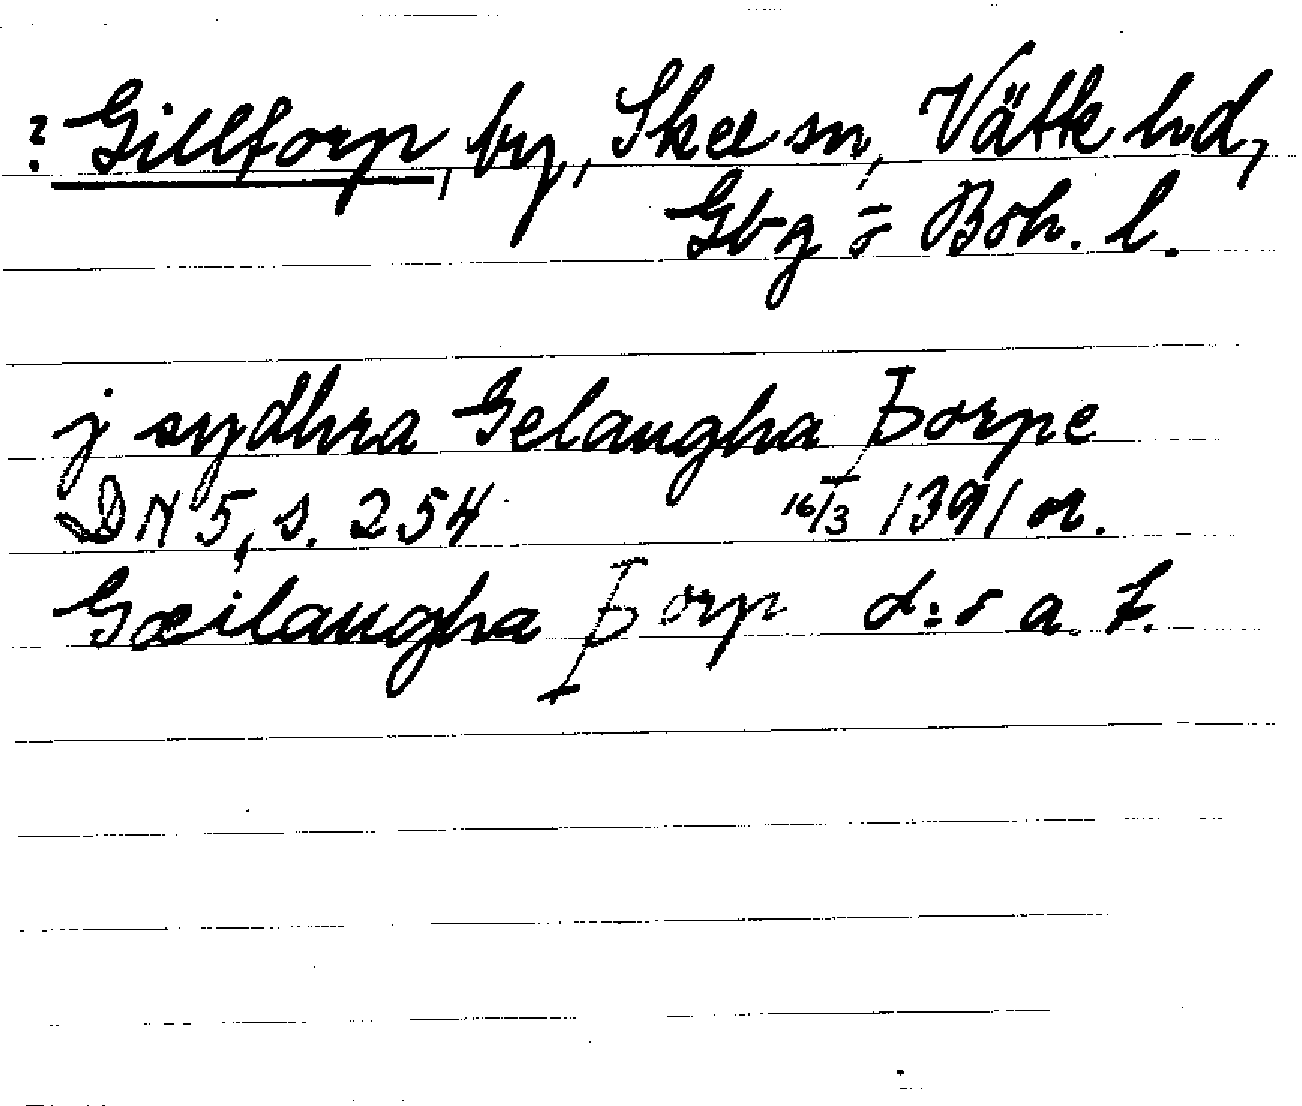 ? Gilltorp, by, Skee sn, Vätte hd,
Gbg o Boh. l.
j sydhra Gelaugha Þorpe
DN 5, s. 254 16/3 1391 or.
Gæilaugha Þorp d:o a. t.